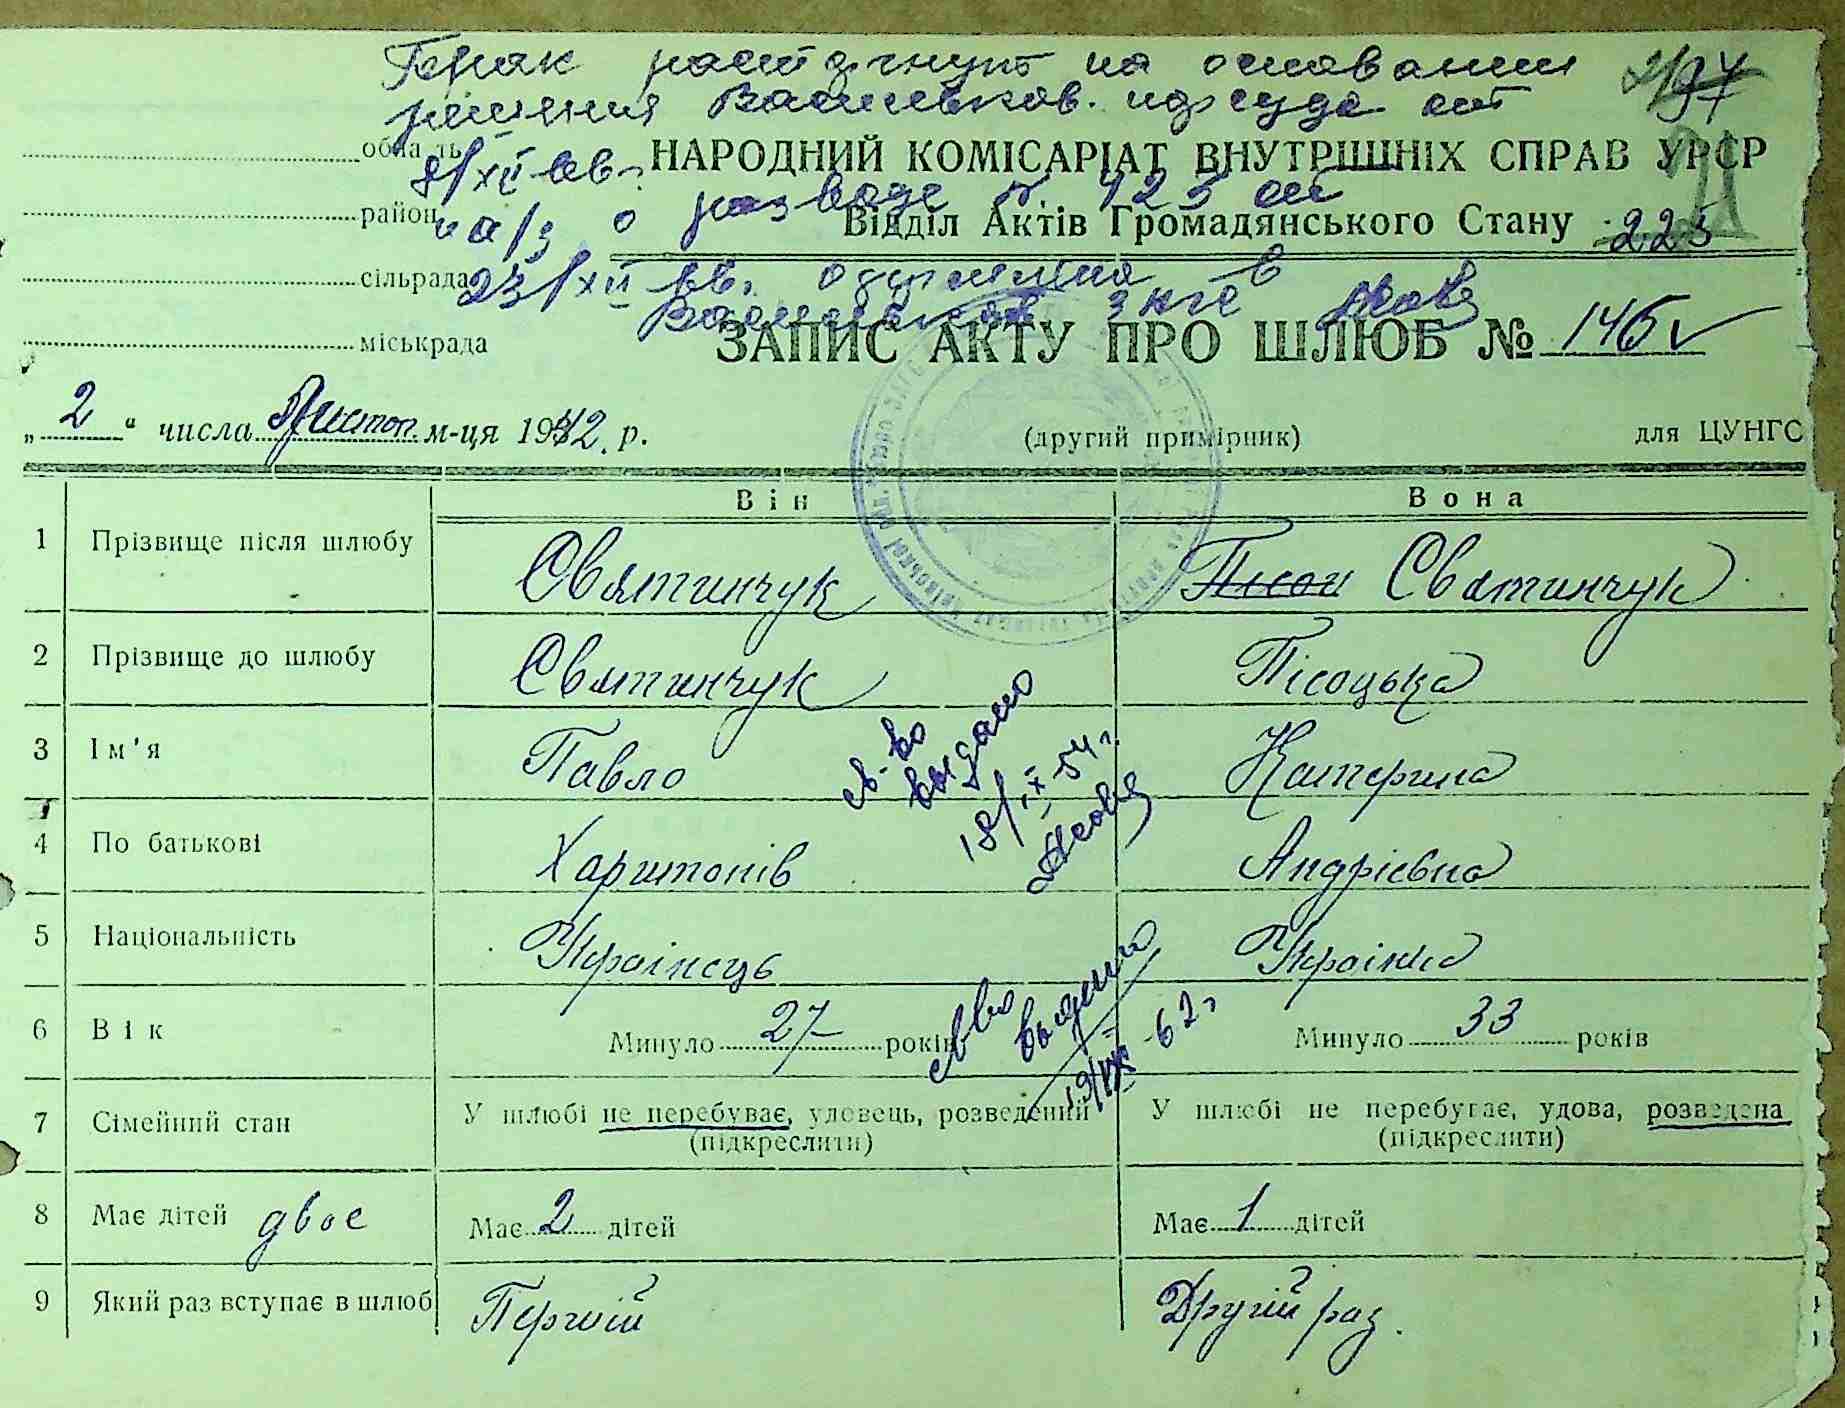 Брак расторгнут на основании
решения Васильков. нарсуда от
8/XII-66г.
и а/з о разводе № 425 от
23/XII 66г.
область
район
сільрада
міськрада
НАРОДНИЙ КОМІСАРІАТ ВНУТРІШНІХ СПРАВ УРСР
Відділ Актів Громадянського Стану 225
ЗАПИС АКТУ ПРО ШЛЮБ № 146
„ 2 “ числа Листоп. м-ця 1942 р.
(другий примірник)
для ЦУНГС
Він Вона
1 Прізвище після шлюбу Святинчук Писои Святинчук
2 Прізвище до шлюбу Святинчук Пісоцька
3 Ім'я Павло Катерина
4 По батькові Харитонів Андріевна
5 Національність Украінець Украінка
6 Вік Минуло 27 років Минуло 33 років
7 Сімейний стан У шлюбі не перебуває, удовець, розведений У шлюбі не перебуває, удова, розведена
(підкреслити) (підкреслити)
8 Має дітей двое Має 2 дітей Має 1 дітей
9 Який раз вступає в шлюб Первий Другий раз.
с-во
выдано
18/IX-54 г.
выдано
19/IX-62 г